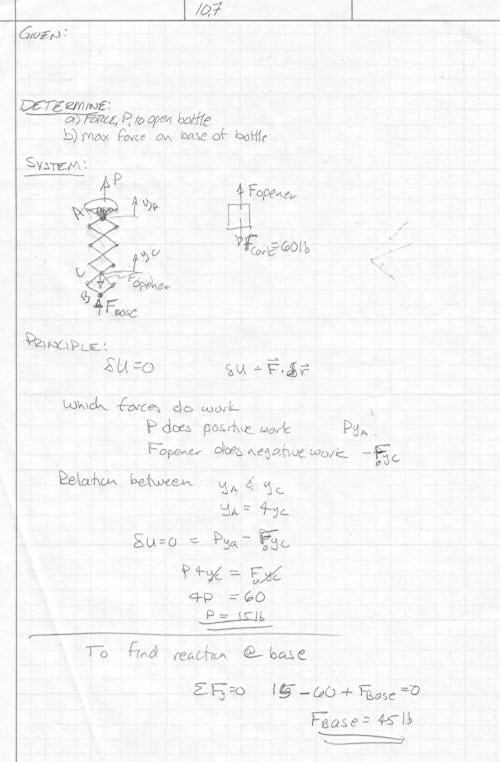 10.7
GIVEN:
DETERMINE:
a) FORCE, P, to open bottle
b) max force on base of bottle
SYSTEM:
P
A
yA
Fopener
Fcork = 60lb
yC
C
Fopener
B
FBASE
PRINCIPLE:
δU=0 δU = F⃗·δr⃗
which forces do work
P does positive work PyA
Fopener does negative work -FoyC
Relation between yA & yC
yA = 4yC
δU=0 = Pya - FoyC
P4yC = FoyC
4P = 60
P = 15lb
To find reaction @ base
ΣFy=0 15 - 60 + FBASE = 0
FBASE = 45 lb